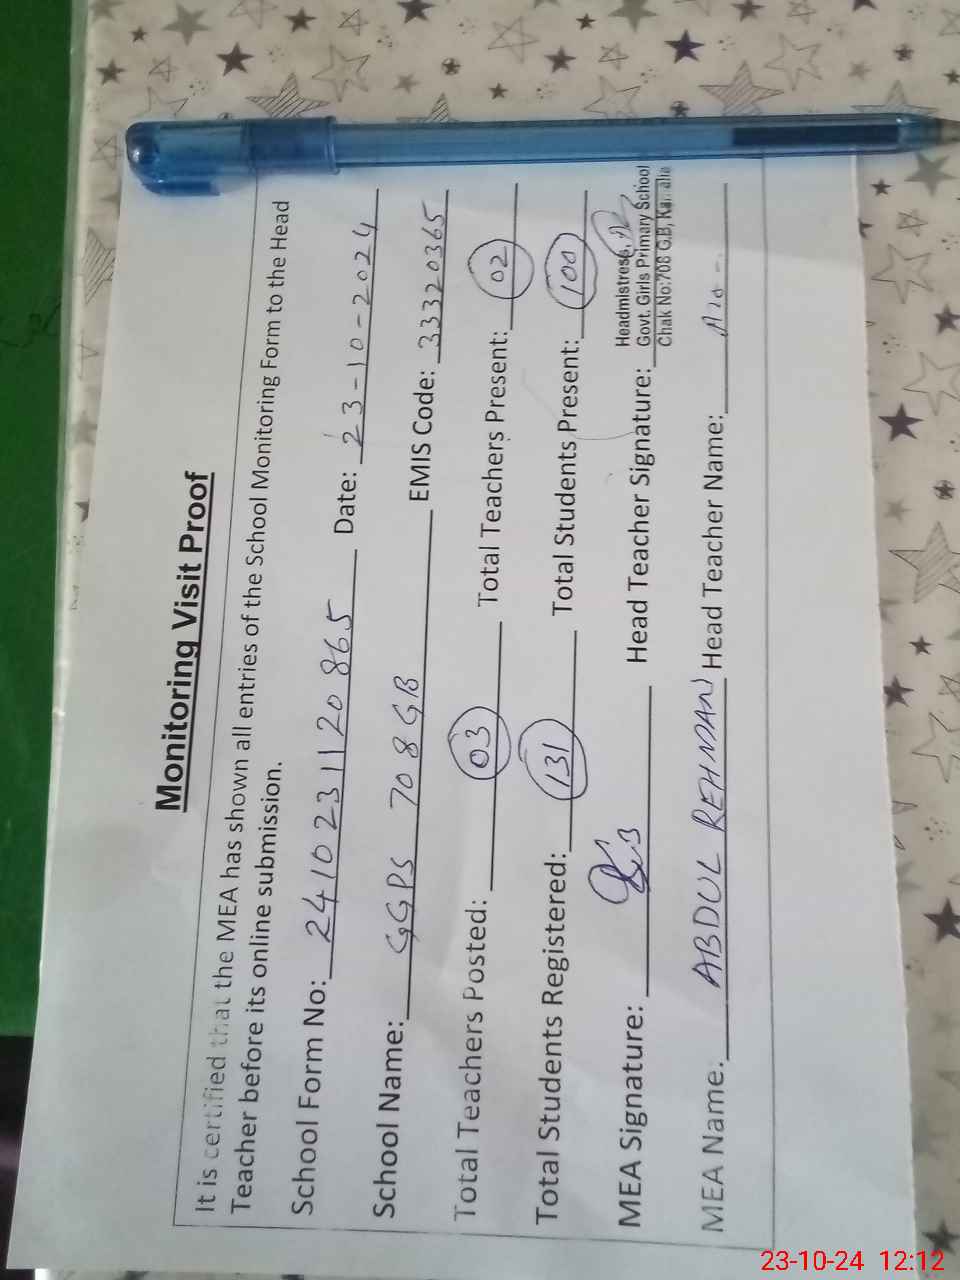 Monitoring Visit Proof
It is certified that the MEA has shown all entries of the School Monitoring Form to the Head
Teacher before its online submission.
School Form No: 2410231120865 Date: 23-10-2024
School Name: GGPS 708 GB EMIS Code: 33320365
Total Teachers Posted: 03 Total Teachers Present: 02
Total Students Registered: 131 Total Students Present: 100
MEA Signature: Head Teacher Signature:
Headmistress,
Govt. Girls Primary School
Chak No:708 G.B, Kamalia
MEA Name: ABDUL REHMAN Head Teacher Name:
23-10-24 12:12